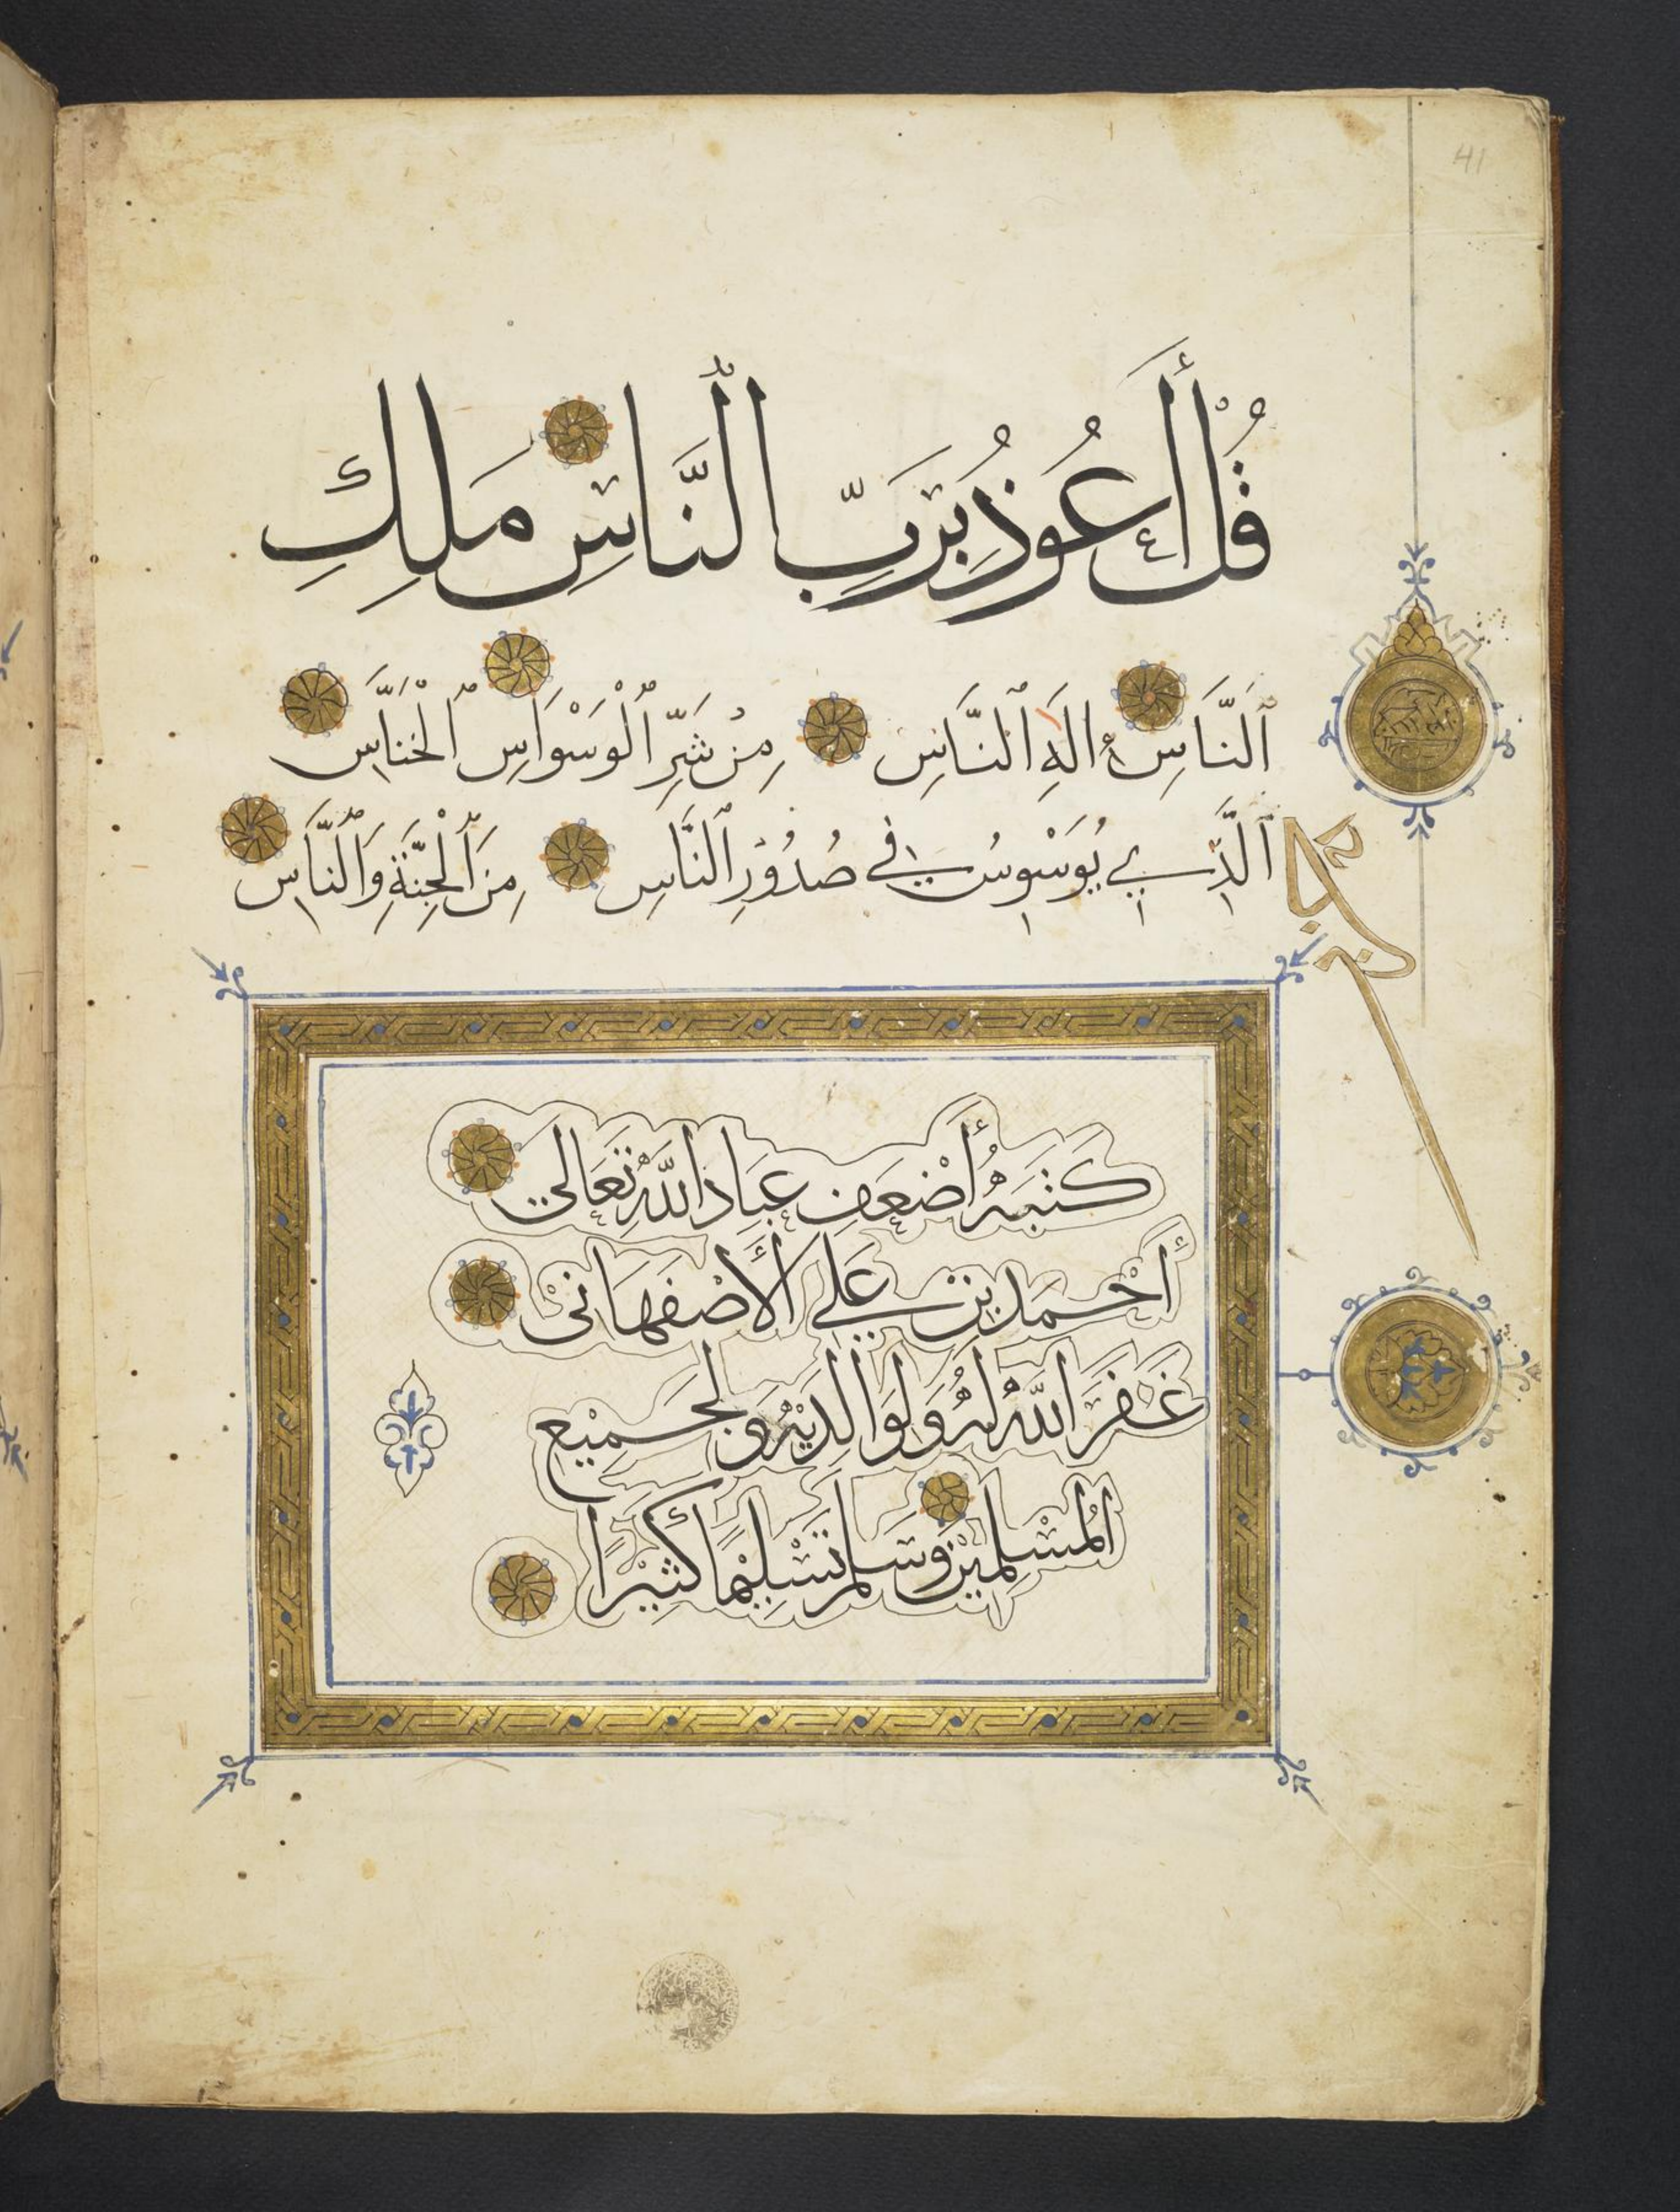 41
قُلْ أَعُوذُ بِرَبِّ ٱلنَّاسِ مَلِكِ
ٱلنَّاسِ إِلَٰهِ ٱلنَّاسِ مِنْ شَرِّ ٱلْوَسْوَاسِ ٱلْخَنَّاسِ
ٱلَّذِي يُوَسْوِسُ فِي صُدُورِ ٱلنَّاسِ مِنَ ٱلْجِنَّةِ وَٱلنَّاسِ
كَتَبَهُ أَضْعَفُ عِبَادِ اللَّهِ تَعَالَى
أَحْمَد بْن عَلِي الأَصْفَهَانِي
غَفَرَ اللَّهُ لَهُ وَلِوَالِدَيْهِ وَلِجَمِيْعِ
المُسْلِمِيْنَ وَسَلَّمَ تَسْلِيْمًا كَثِيْرًا